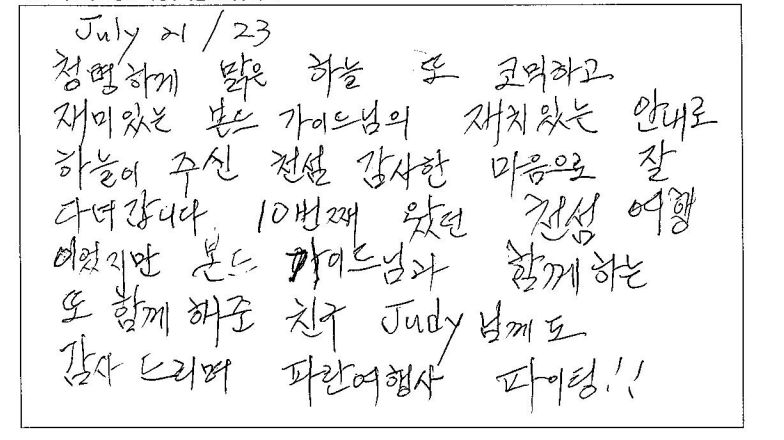 July 21/23
청명하게 맑은 하늘 또 코믹하고
재미있는 본드 가이드님의 재치있는 안내로
하늘이 주신 천섬 감사한 마음으로 잘
다녀갑니다. 10번째 왔던 천섬 여행
이었지만 본드 가이드님과 함께하는
또 함께 해준 친구 Judy님께도
감사 드리며 파란여행사 파이팅!!